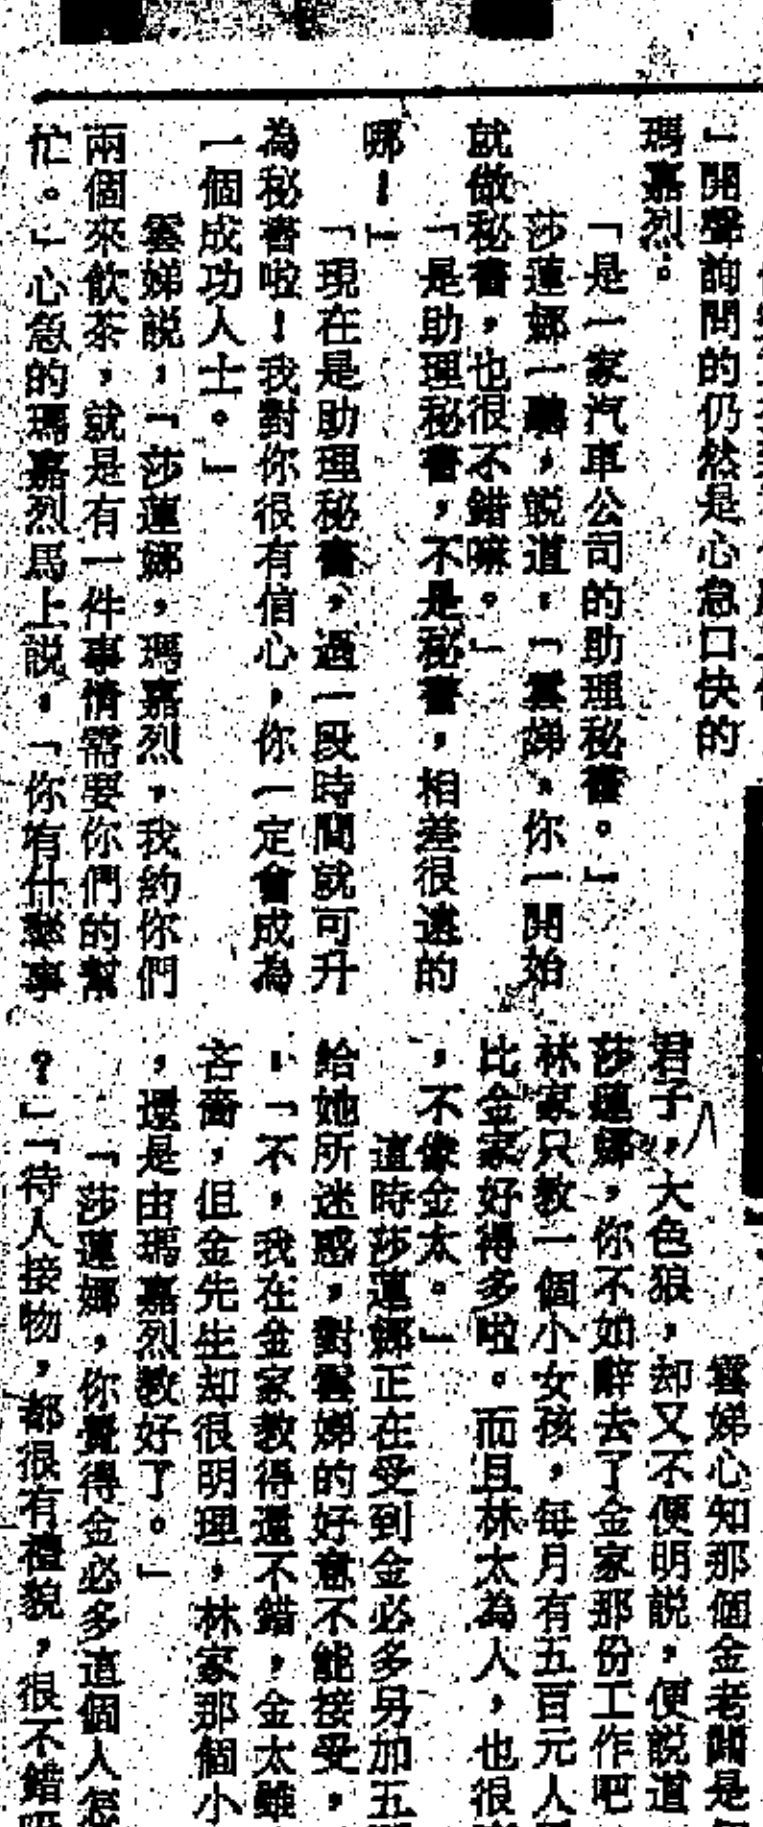 」開聲詢問的仍然是心急口快的
瑪嘉烈。
「是一家汽車公司的助理秘書。」
莎蓮娜一聽，說道：「雲娣，你一開始
就做秘書，也很不錯嘛。」
「是助理秘書，不是秘書，相差很遠的
哪！」
「現在是助理秘書，過一段時間就可升
為秘書啦！我對你很有信心，你一定會成為
一個成功人士。」
雲娣說：「莎蓮娜，瑪嘉烈，我約你們
兩個來飲茶，就是有一件事情需要你們的幫
忙。」心急的瑪嘉烈馬上說：「你有什麼事
雲娣心知那個金老闆是
君子，大色狼，却又不便明說，便說道
莎蓮娜，你不如辭去了金家那份工作吧
林家只教一個小女孩，每月有五百元人
比金家好得多啦。而且林太為人，也很
，不像金太。」
這時莎蓮娜正在受到金必多另加五
給她所迷惑，對雲娣的好意不能接受，
，「不，我在金家教得還不錯，金太雖
吝嗇，但金先生却很明理，林家那個小
，還是由瑪嘉烈教好了。」
「莎蓮娜，你覺得金必多這個人怎
？」「待人接物，都很有禮貌，很不錯